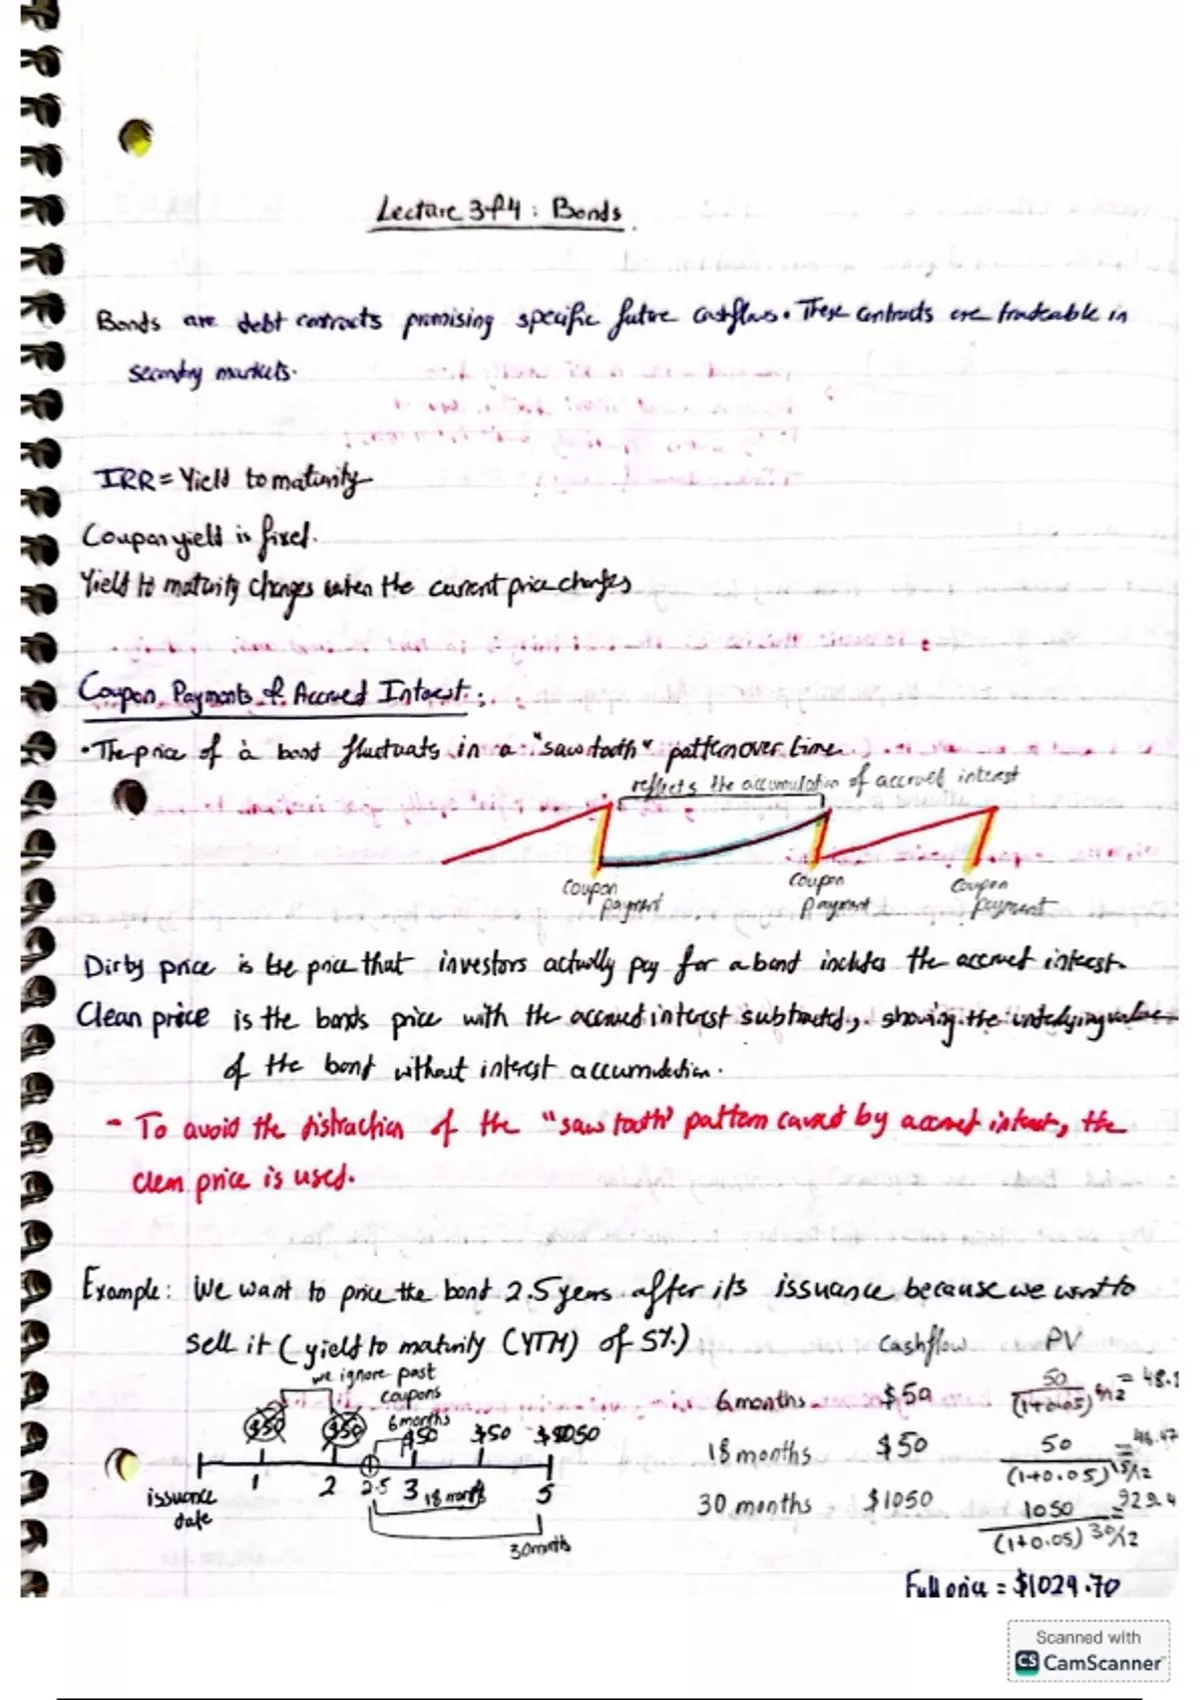 Lecture 3&4: Bonds
Bonds are debt contracts promising specific future cashflows. These contracts are tradeable in
secondry markets.
IRR = Yield to maturity
Coupon yield is fixed.
Yield to maturity changes when the current price changes
Coupon Payments & Accrued Interest:
• The price of a bond fluctuats in a "saw tooth" pattern over time.
reflects the accumulation of accrued interest
Coupon payment
Coupon payment
Coupon payment
Dirty price is the price that investors actually pay for a bond includes the accrued interest.
Clean price is the bonds price with the accrued interest subtracted, showing the underlying value
of the bond without interest accumulation.
- To avoid the distraction of the "saw tooth" pattern caused by accrued interest, the
clean price is used.
Example: We want to price the bond 2.5 years after its issuance because we want to
sell it (yield to maturity (YTM) of 5%)
Cashflow PV
we ignore past
coupons
6 months $50 50/(1+0.05)^6/12 = 48.
$50 $50 6 months $50 $50 $1050
18 months $50 50/(1+0.05)^18/12 = 46.47
1 2 2.5 3 18 months 5
issuance
date
30 months $1050 1050/(1+0.05)^30/12 = 929.4
30 months
Full price = $1029.70
Scanned with
CS CamScanner